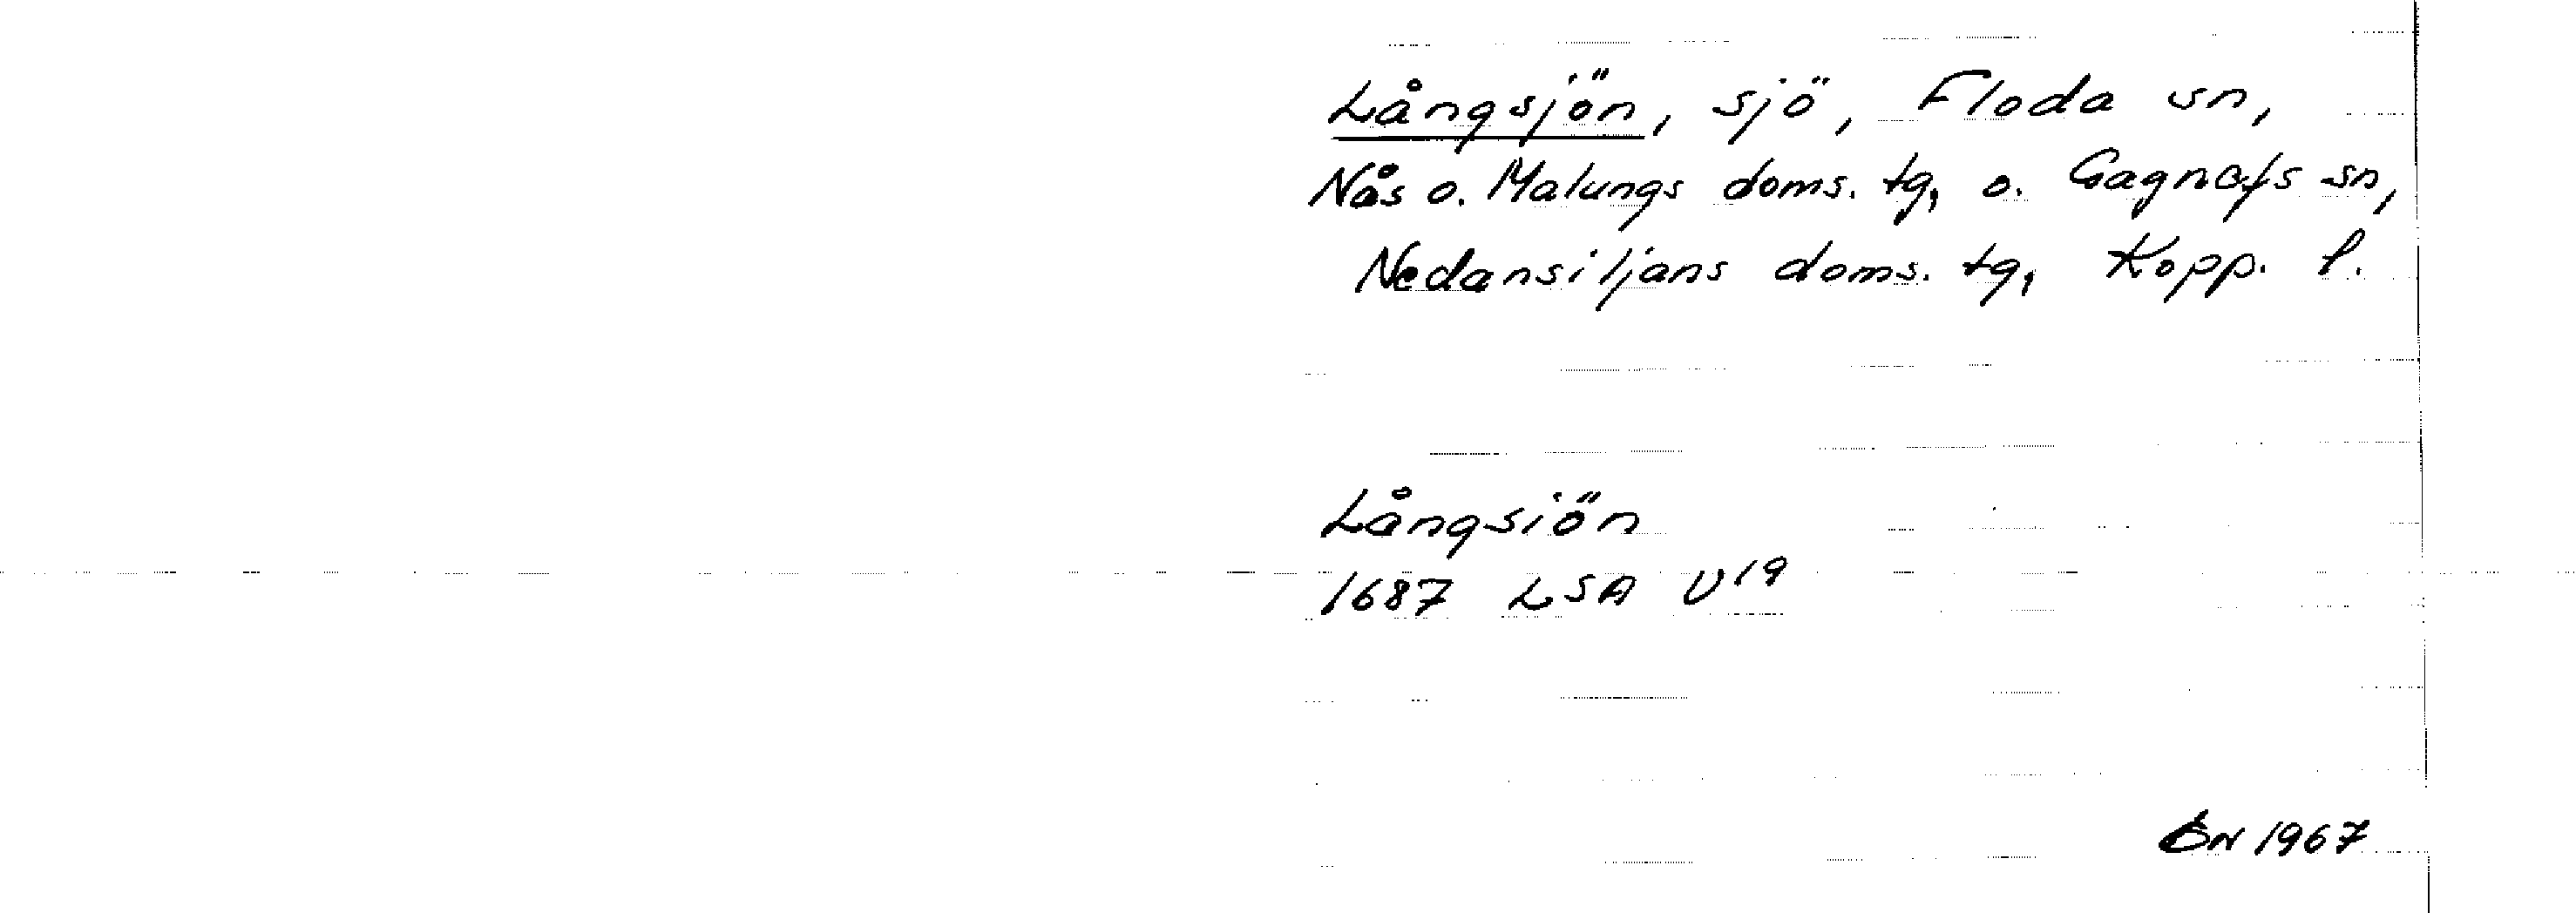 Långsjön, sjö, Floda sn,
Nås o. Malungs doms. tg, o. Gagnefs sn,
Nedansiljans doms. tg, Kopp. l.
Långsiön
1687 LSA U19
1967